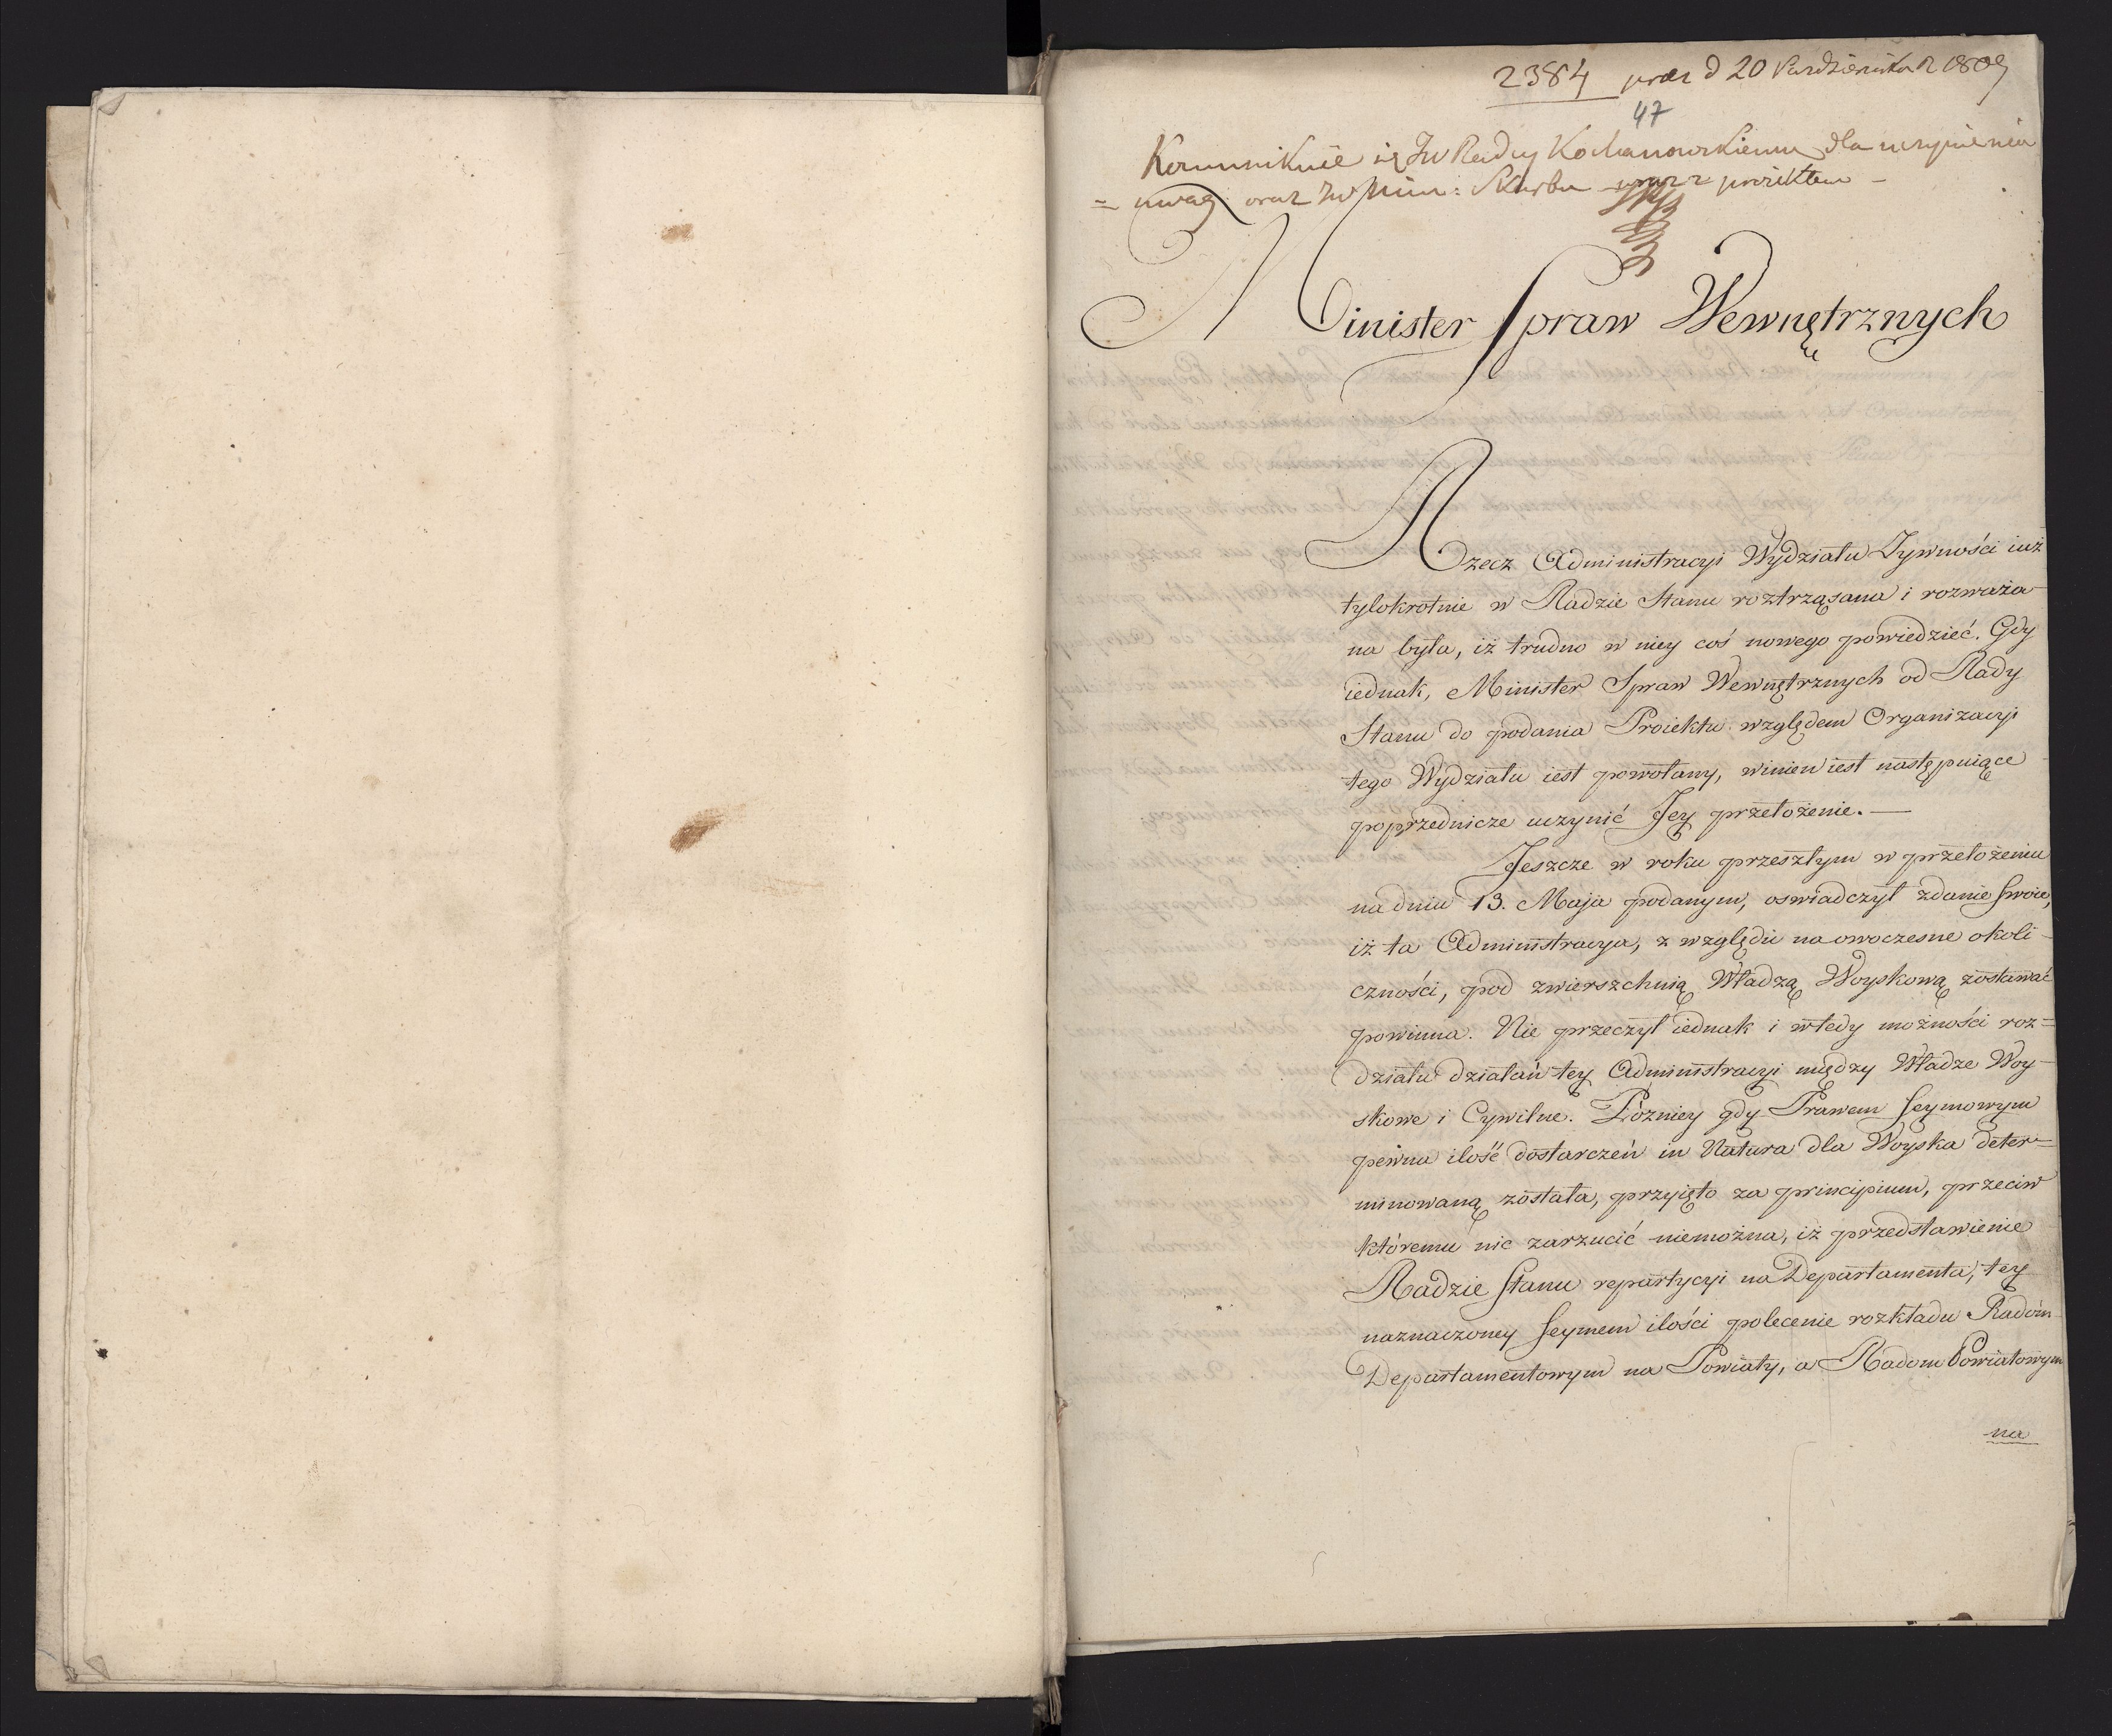 2384 prez d 20 Października R 1809
47
Kommunikuie się JW Radcy Kochanowskiemu dla uczynienia
= uwag oraz JW Min: Skarbu wraz z proiektem -
Minister Spraw Wewnętrznych
Rzecz Administracyi Wydziału Żywności iuż
tylokrotnie w Radzie Stanu roztrząsana i rozważa-
na była, iż trudno w niey coś nowego powiedzieć. Gdy
iednak, Minister Spraw Wewnętrznych od Rady
Stanu do podania Proiektu względem Organizacyi
tego Wydziału iest powołany, winien iest następuiące
poprzednicze uczynić Jey przełożenie. —
Jeszcze w roku przeszłym w przełożeniu
na dniu 13. Maja podanym, oswiadczył zdanie swoie,
iż ta Administracya, z względu na owoczesne okoli-
czności, pod zwierszchnią Władzą Woyskową zostawać
powinna. Nie przeczył iednak i wtedy możności roz=
działu działań tey Administracyi między Władze Woy-
skowe i Cywilne. Pózniey gdy Prawem Seymowym
pewna ilość dostarczeń in Natura dla Woyska deter=
minowaną została, przyięto za principium, przeciw
któremu nic zarzucić niemożna, iż przedstawienie
Radzie Stanu repartycyi na Departamenta, tey
naznaczoney Seymem ilości polecenie rozkładu Radom
Departamentowym na Powiaty, a Radom Powiatowym
na